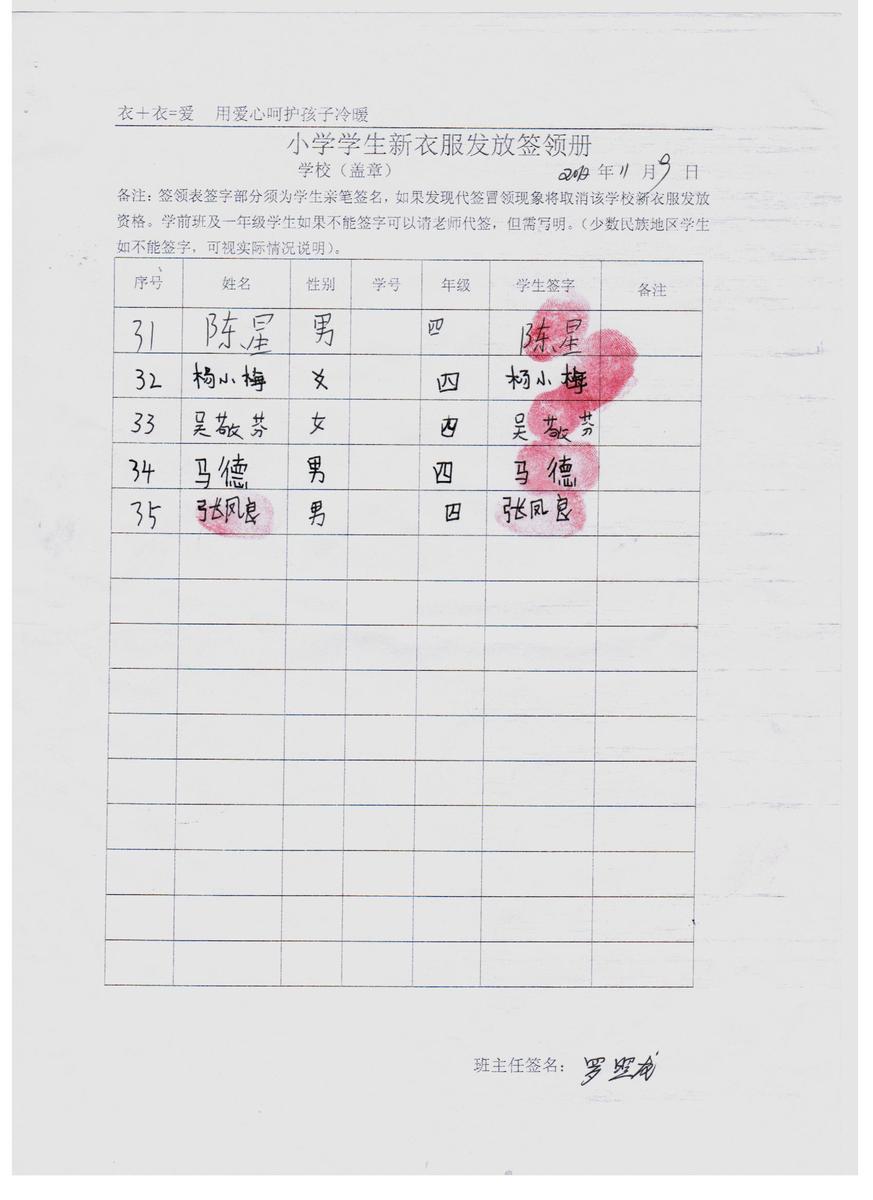 衣＋衣=爱 用爱心呵护孩子冷暖
小学学生新衣服发放签领册
学校（盖章） 年 11 月 9 日
备注：签领表签字部分须为学生亲笔签名，如果发现代签冒领现象将取消该学校新衣服发放
资格。学前班及一年级学生如果不能签字可以请老师代签，但需写明。（少数民族地区学生
如不能签字，可视实际情况说明）。
序号 姓名 性别 学号 年级 学生签字 备注
31 陈星 男 四 陈星
32 杨小梅 女 四 杨小梅
33 吴敬芬 女 四 吴敬芬
34 马德 男 四 马德
35 张凤良 男 四 张凤良
班主任签名： 罗照龙